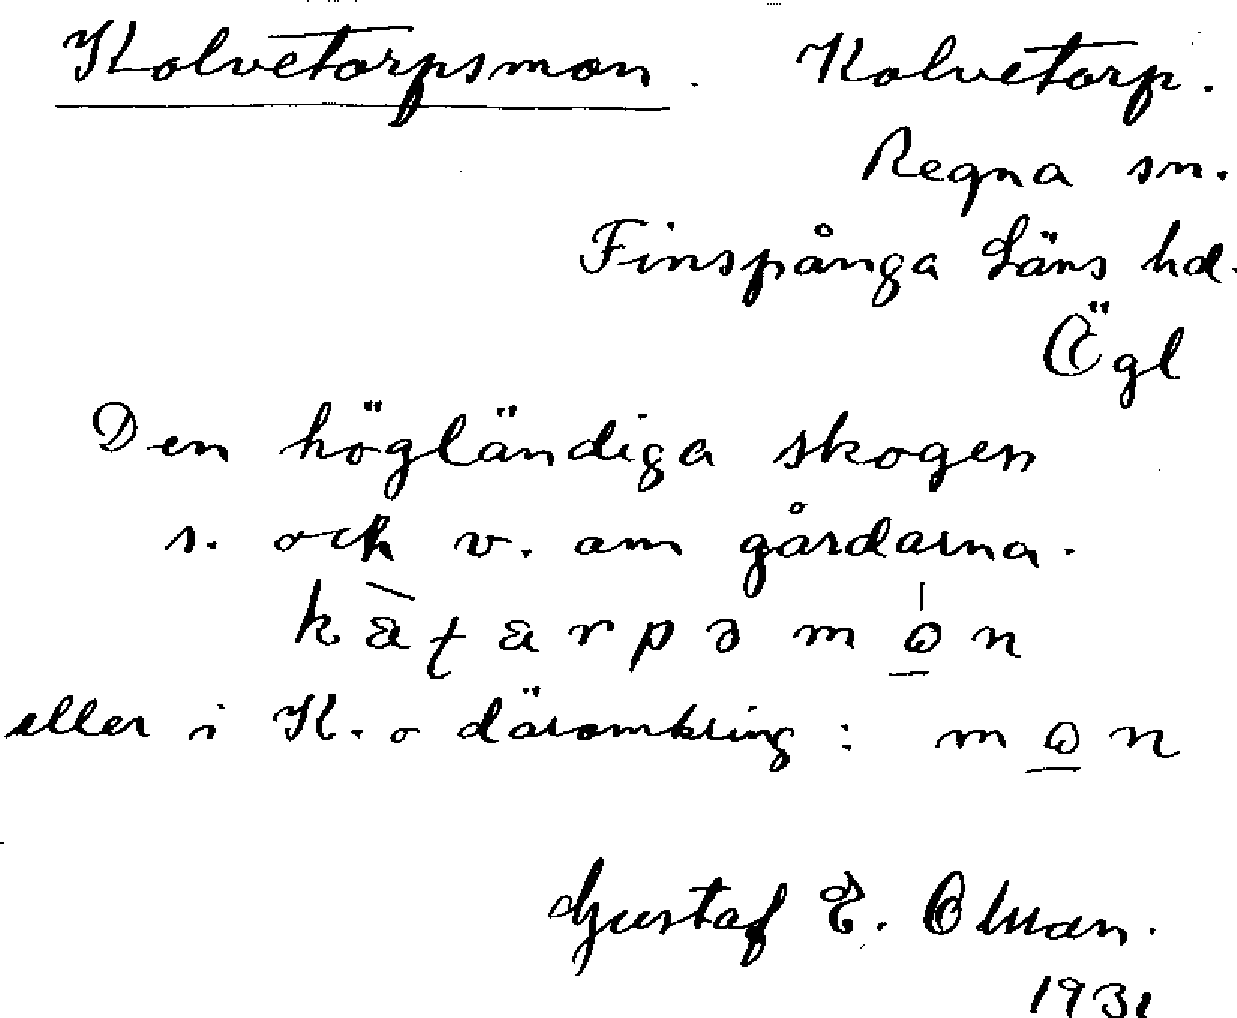 Kolvetorpsmon. Kolvetorp.
Regna sn.
Finspånga läns hd.
Ögl
Den högländiga skogen
s. och v. om gårdarna.
eller i K. o däromkring:
Gustaf E. Olman.
1931